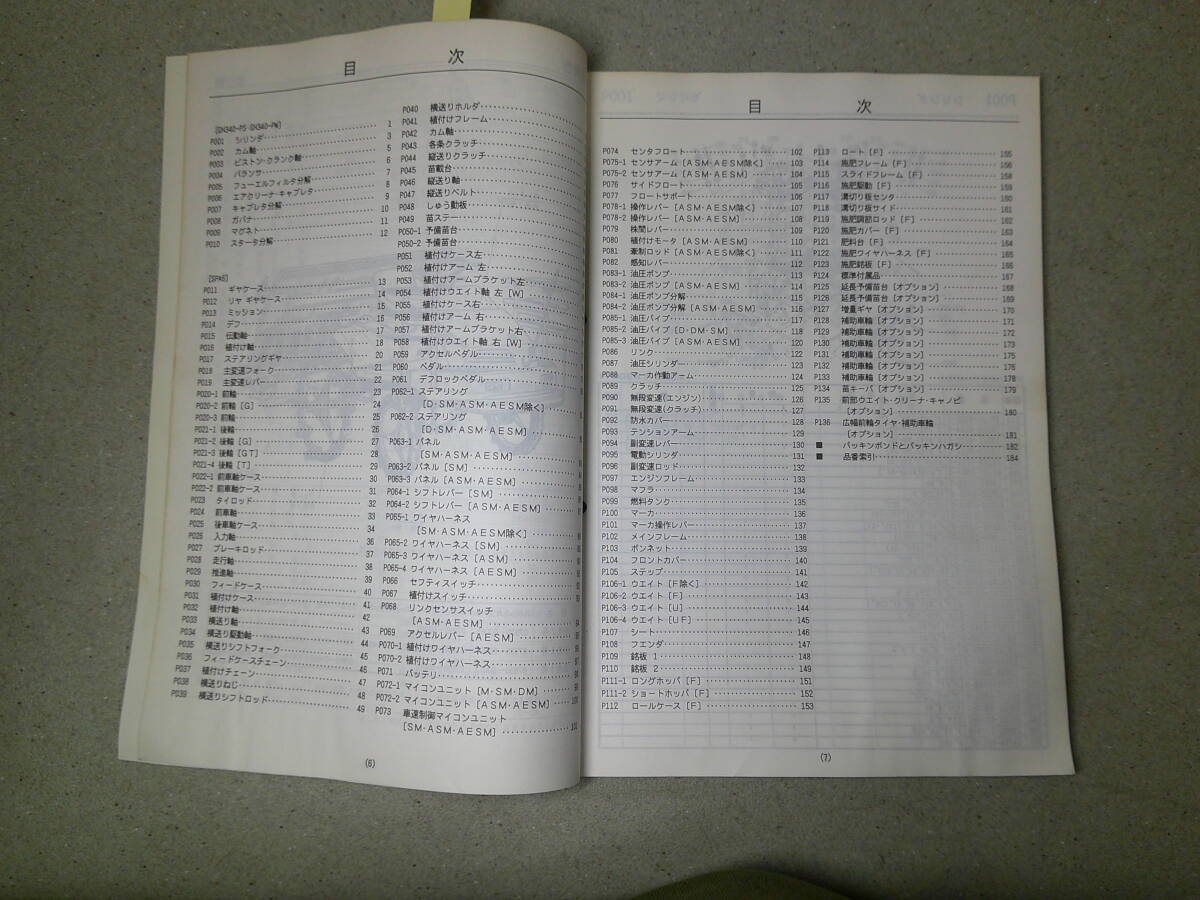 目 次
[GN340-PS・GN340-PW]
P001 シリンダ 1
P002 カム軸 3
P003 ピストン・クランク軸 5
P004 バランサ 6
P005 フューエルフィルタ分解 7
P006 エアクリーナ・キャブレタ 8
P007 キャブレタ分解 9
P008 ガバナ 10
P009 マグネト 11
P010 スタータ分解 12
P011 ギヤケース 13
P012 リヤ ギヤケース 14
P013 ミッション 15
P014 デフ 16
P015 伝動軸 17
P016 植付け軸 18
P017 ステアリングギヤ 20
P018 主変速フォーク 21
P019 主変速レバー 22
P020-1 前輪 23
P020-2 前輪 [G] 24
P020-3 前輪 25
P021-1 後輪 26
P021-2 後輪 [G] 27
P021-3 後輪 [GT] 28
P021-4 後輪 [T] 29
P022-1 前車軸ケース 30
P022-2 前車軸ケース 31
P023 タイロッド 32
P024 前車軸 33
P025 後車軸ケース 34
P026 入力軸 36
P027 ブレーキロッド 37
P028 走行軸 38
P029 推進軸 39
P030 フィードケース 40
P031 植付けケース 41
P032 植付け軸 42
P033 横送り軸 43
P034 横送り駆動軸 44
P035 横送りシフトフォーク 45
P036 フィードケースチェーン 46
P037 植付けチェーン 47
P038 横送りねじ 48
P039 横送りシフトロッド 49
P040 横送りホルダ
P041 植付けフレーム
P042 カム軸
P043 各条クラッチ
P044 縦送りクラッチ
P045 苗載台
P046 縦送り軸
P047 縦送りベルト
P048 しゅう動板
P049 苗ステー
P050-1 予備苗台
P050-2 予備苗台
P051 植付けケース左
P052 植付けアーム 左
P053 植付けアームブラケット左
P054 植付けウエイト軸 左 [W]
P055 植付けケース右
P056 植付けアーム 右
P057 植付けアームブラケット右
P058 植付けウエイト軸 右 [W]
P059 アクセルペダル
P060 ペダル
P061 デフロックペダル
P062-1 ステアリング
[D・SM・ASM・AESM除く]
P062-2 ステアリング
[D・SM・ASM・AESM]
P063-1 パネル
[SM・ASM・AESM]
P063-2 パネル [SM]
P063-3 パネル [ASM・AESM]
P064-1 シフトレバー [SM]
P064-2 シフトレバー [ASM・AESM]
P065-1 ワイヤハーネス
[SM・ASM・AESM除く]
P065-2 ワイヤハーネス [SM]
P065-3 ワイヤハーネス [ASM]
P065-4 ワイヤハーネス [AESM]
P066 セフティスイッチ
P067 植付けスイッチ
P068 リンクセンサスイッチ
[ASM・AESM]
P069 アクセルレバー [AESM]
P070-1 植付けワイヤハーネス
P070-2 植付けワイヤハーネス
P071 バッテリ
P072-1 マイコンユニット [M・SM・DM]
P072-2 マイコンユニット [ASM・AESM]
P073 車速制御マイコンユニット
[SM・ASM・AESM]
(6)
目 次
P074 センタフロート 102
P075-1 センサアーム [ASM・AESM除く] 103
P075-2 センサアーム [ASM・AESM] 104
P076 サイドフロート 105
P077 フロートサポート 106
P078-1 操作レバー [ASM・AESM除く] 107
P078-2 操作レバー [ASM・AESM] 108
P079 株間レバー 109
P080 植付けモータ [ASM・AESM] 110
P081 牽制ロッド [ASM・AESM除く] 111
P082 感知レバー 112
P083-1 油圧ポンプ 113
P083-2 油圧ポンプ [ASM・AESM] 114
P084-1 油圧ポンプ分解 115
P084-2 油圧ポンプ分解 [ASM・AESM] 116
P085-1 油圧パイプ 117
P085-2 油圧パイプ [D・DM・SM] 118
P085-3 油圧パイプ [ASM・AESM] 120
P086 リンク 122
P087 油圧シリンダー 123
P088 マーカ作動アーム 124
P089 クラッチ 125
P090 無段変速(エンジン) 126
P091 無段変速(クラッチ) 127
P092 防水カバー 128
P093 テンションアーム 129
P094 副変速レバー 130
P095 電動シリンダ 131
P096 副変速ロッド 132
P097 エンジンフレーム 133
P098 マフラ 134
P099 燃料タンク 135
P100 マーカ 136
P101 マーカ操作レバー 137
P102 メインフレーム 138
P103 ボンネット 139
P104 フロントカバー 140
P105 ステップ 141
P106-1 ウエイト [F除く] 142
P106-2 ウエイト [F] 143
P106-3 ウエイト [U] 144
P106-4 ウエイト [UF] 145
P107 シート 146
P108 フエンダ 147
P109 銘板 1 148
P110 銘板 2 149
P111-1 ロングホッパ [F] 151
P111-2 ショートホッパ [F] 152
P112 ロールケース [F] 153
P113 ロート [F] 155
P114 施肥フレーム [F] 156
P115 スライドフレーム [F] 158
P116 施肥駆動 [F] 159
P117 溝切り板センタ 160
P118 溝切り板サイド 161
P119 施肥調節ロッド [F] 162
P120 施肥カバー [F] 163
P121 肥料台 [F] 164
P122 施肥ワイヤハーネス [F] 165
P123 施肥銘板 [F] 166
P124 標準付属品 167
P125 延長予備苗台 [オプション] 168
P126 延長予備苗台 [オプション] 169
P127 増量ギヤ [オプション] 170
P128 補助車輪 [オプション] 171
P129 補助車輪 [オプション] 172
P130 補助車輪 [オプション] 173
P131 補助車輪 [オプション] 175
P132 補助車輪 [オプション] 176
P133 補助車輪 [オプション] 178
P134 苗キーパ [オプション] 179
P135 前部ウエイト・クリーナ・キャノピ
[オプション] 180
P136 広幅前輪タイヤ・補助車輪
[オプション] 181
■ パッキンボンドとパッキンハガシ 182
■ 品番索引 184
(7)